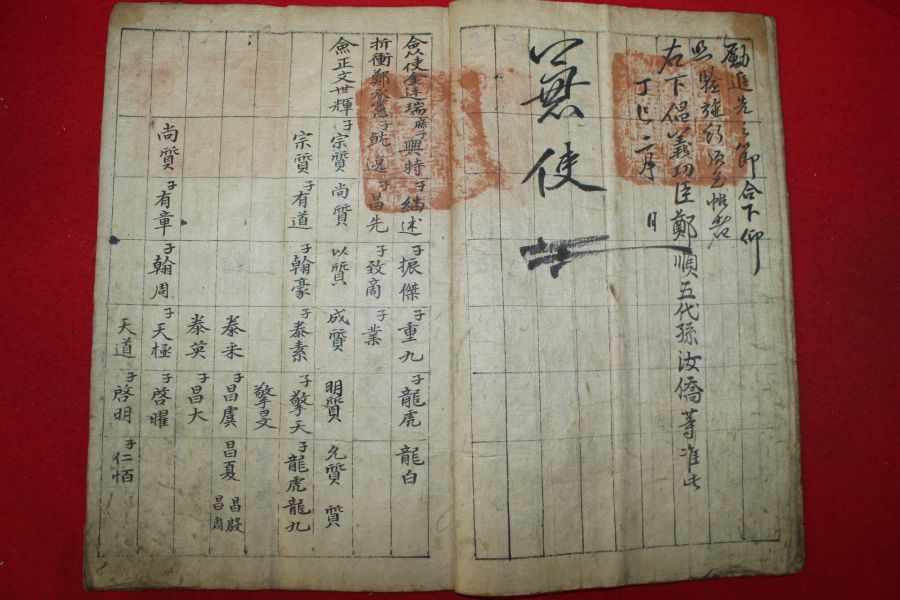 勵進先之節合下仰
照驗施行須至帖者
右下倡義功臣鄭順五代孫汝僑等准此
丁巳二月 日
兼使
僉使金廷瑞 子興特 子繼述 子振傑 子重九 子龍虎 龍白
折衝鄭承憲 子 逸 子昌先 子致商 子業
僉正文世輝 子宗質 尚質 以質 成質 明質 允質 質
宗質 子有道 子翰豪 子泰素 子擎天 子龍虎 龍九
擎旻
泰來 子昌虞 昌夏 昌殷 昌周
泰英 子昌大
尚質 子有章 子翰周 子天極 子啓曜
天道 子啓明 子仁恒